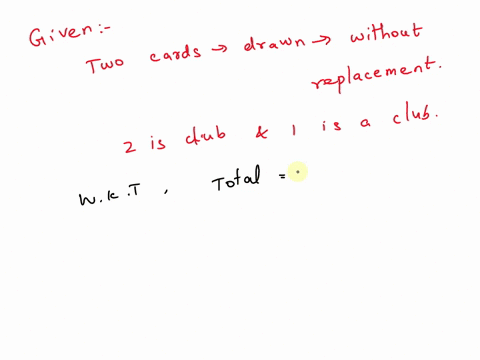 Given:-
Two cards → drawn → without
replacement.
2 is club & 1 is a club.
W.K.T , Total =